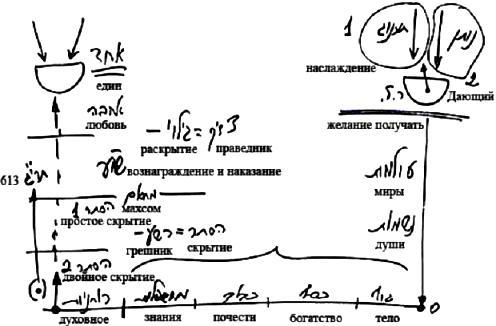 1
תענוג
נותן
наслаждение
2
Дающий
ר.ל.
желание получать
אחד
един
אהבה
любовь
צדיק = גילוי –
раскрытие праведник
שו"ע
вознаграждение и наказание
613 תרי"ג
מחסום
махсом
הסתר 1
простое скрытие
הסתר = רשע –
грешник скрытие
הסתר 2
двойное скрытие
עולמות
миры
נשמות
души
רוחניות
духовное
מושכלות
знания
כבוד
почести
כסף
богатство
גוף
тело
0